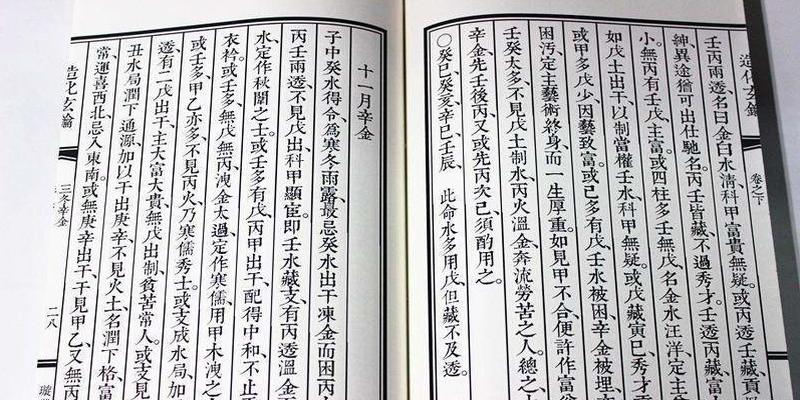 造化玄鑰
卷之下
壬丙兩透名曰金白水清科甲富貴無疑。或丙透壬藏貢
紳異途猶可出仕馳名。丙壬皆藏不過秀才。壬透丙藏富
小。無丙有壬戊主富。或四柱多壬無戊名金水汪洋定主
如戊土出干以制當權壬水科甲無疑。或戊藏寅巳秀才
或甲多戊少因藝致富。或己多有戊壬水被困辛金被埋
困污定主藝術終身而一生厚重。如見甲不合便許作富
壬癸太多不見戊土制水丙火溫金奔流勞苦之人。總之
辛金先壬後丙又或先丙次己須酌用之。
○癸巳、癸亥、辛巳、壬辰、 此命水多用戊但藏不及透。
十一月辛金
子中癸水得令爲寒冬雨露最忌癸水出干凍金而困丙
丙壬兩透不見戊出科甲顯宦。即壬水藏支有丙透溫金
水定作秋闈之士。或壬多有戊丙甲出干配得中和不止
衣衿。或壬多無戊無丙洩金太過定作寒儒用甲木洩之
或壬多甲乙亦多不見丙火乃寒儒秀士。或支成水局加
透有二戊出干主大富大貴無戊出制貧苦常人。或支見
丑水局潤下通源加以干出庚辛不見火土名潤下格富
常運喜西北忌入東南。或無庚辛出干干見甲乙又無丙
造化玄鑰
三冬辛金
二八